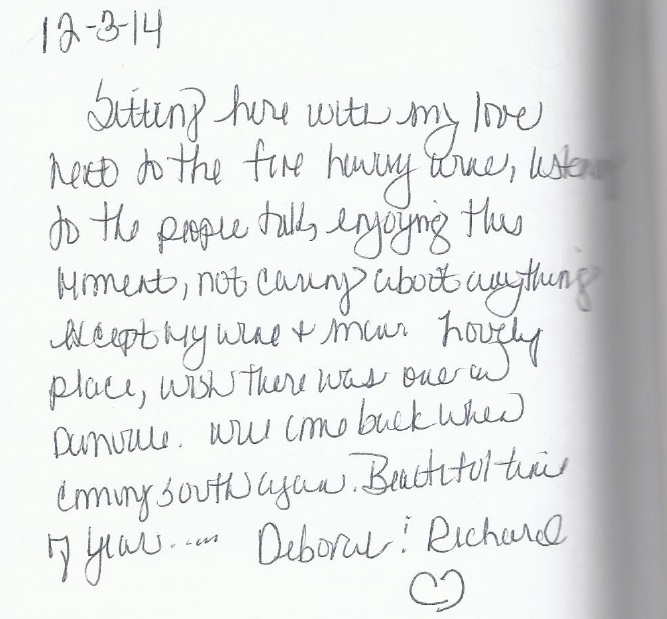 12-3-14
Sitting here with my love
next to the fire having wine, listening
to the people talk, enjoying this
Moment, not caring about anything
except my wine & man. Lovely
place, wish there was one in
Danville. Will come back when
coming south again. Beautiful time
of year.....  Deborah & Richard